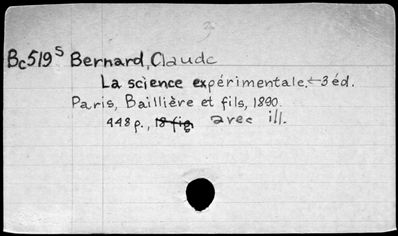 Bc519s Bernard, Claude
La science expérimentale. 3 éd.
Paris, Baillière et fils, 1890.
448 p., 18 fig. avec ill.